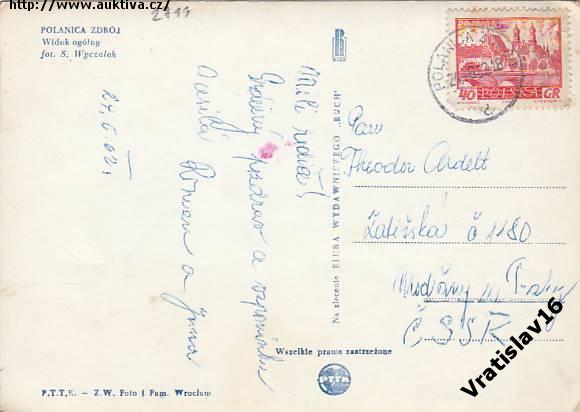 http://www.auktiva.cz/
2711
POLANICA ZDRÓJ
Widok ogólny
fot. S. Wyczałek
27. 6. 62.
Milí rodiče!
Srdečný pozdrav a vzpomínku
a Jana
Na zlecenie BIURA WYDAWNICZEGO „RUCH"
POLANICA Z
40 POLSKA GR
Pan
Theodor Ardelt
Zátišská č 1180
Modřany u Prahy
ČSSR
Wszelkie prawa zastrzeżone
PTTK
P.T.T.K. - Z.W. Foto i Pam. Wrocław
Vratislav16